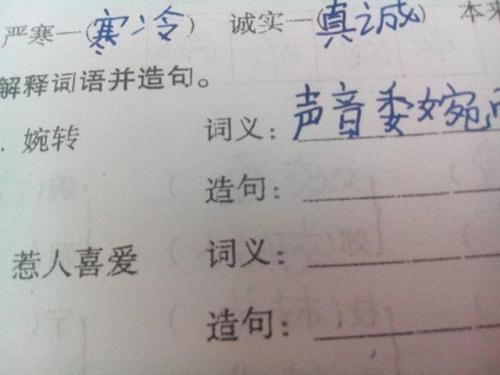 严寒一(寒冷) 诚实一(真诚) 本
解释词语并造句。
. 婉转 词义：声音委婉
造句：
惹人喜爱 词义：
造句：